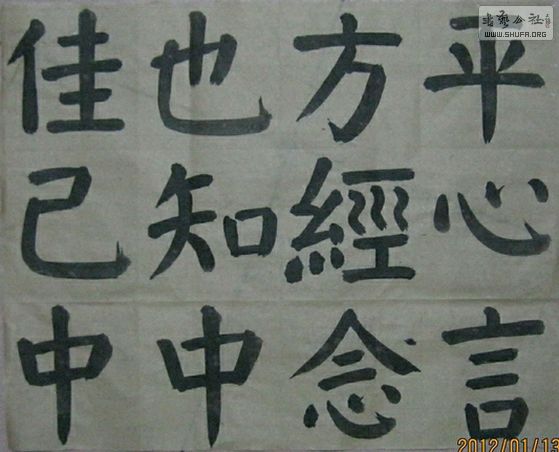 平心言
方經念
也知中
佳己中
書藝公社
WWW.SHUFA.ORG
2012/01/13